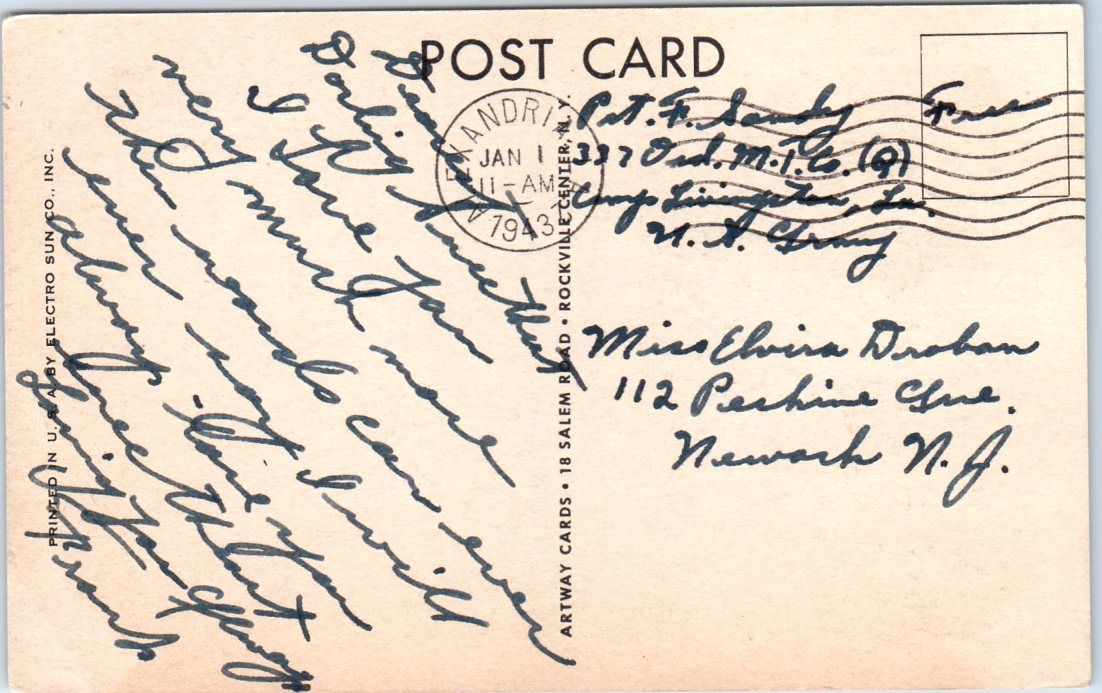 POST CARD
ALEXANDRIA LA.
JAN 1
11-AM
1943
Free
Pvt. F. Sandy
337 Ord. M. T. Co. (Q)
Camp Livingston, La.
U. S. Army
Miss Elvira Droban
112 Peshine Ave.
Newark N. J.
Darling Sweetheart
I love you
very much more
then words can ever
even say I will
always love you
Loving You Always
Frank
ARTWAY CARDS • 18 SALEM ROAD • ROCKVILLE CENTER, N. Y.
PRINTED IN U. S. A. BY ELECTRO SUN CO., INC.